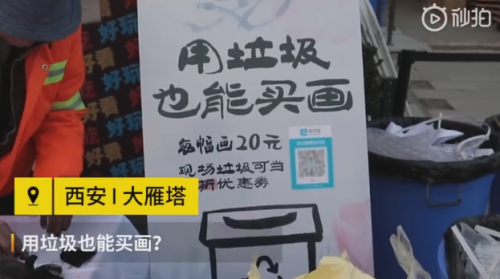 秒拍
用垃圾
也能买画
每幅画20元
现场垃圾可当
折优惠券
西安 | 大雁塔
用垃圾也能买画？